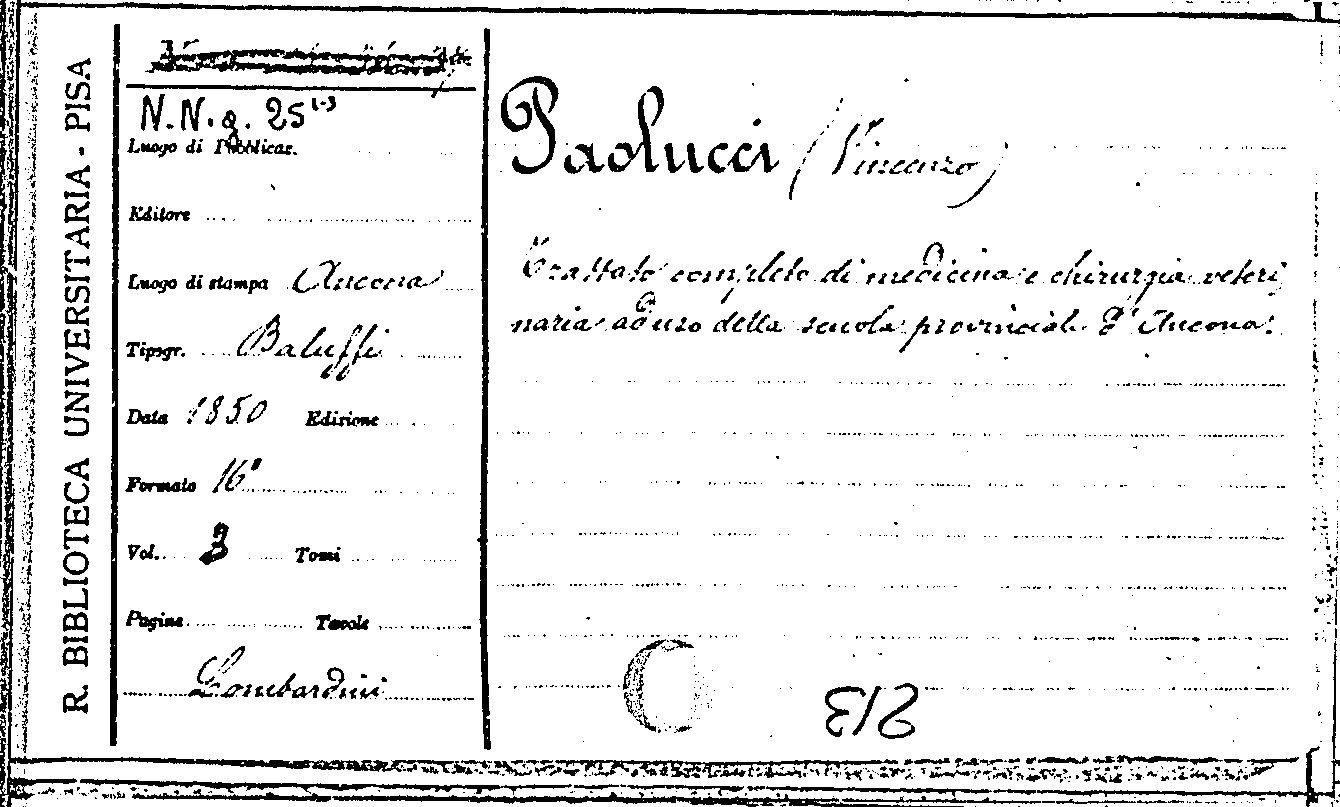 R. BIBLIOTECA UNIVERSITARIA - PISA
N. N. g. 25 1-3
Luogo di Pubblicaz.
Editore
Luogo di stampa Ancona
Tipogr. Baluffi
Data 1850 Edizione
Formato 16°
Vol. 3 Tomi
Pagine Tavole
Lombardini
Paolucci (Vincenzo)
Trattato completo di medicina e chirurgia veteri
naria ad uso della scuola provinciale d'Ancona.